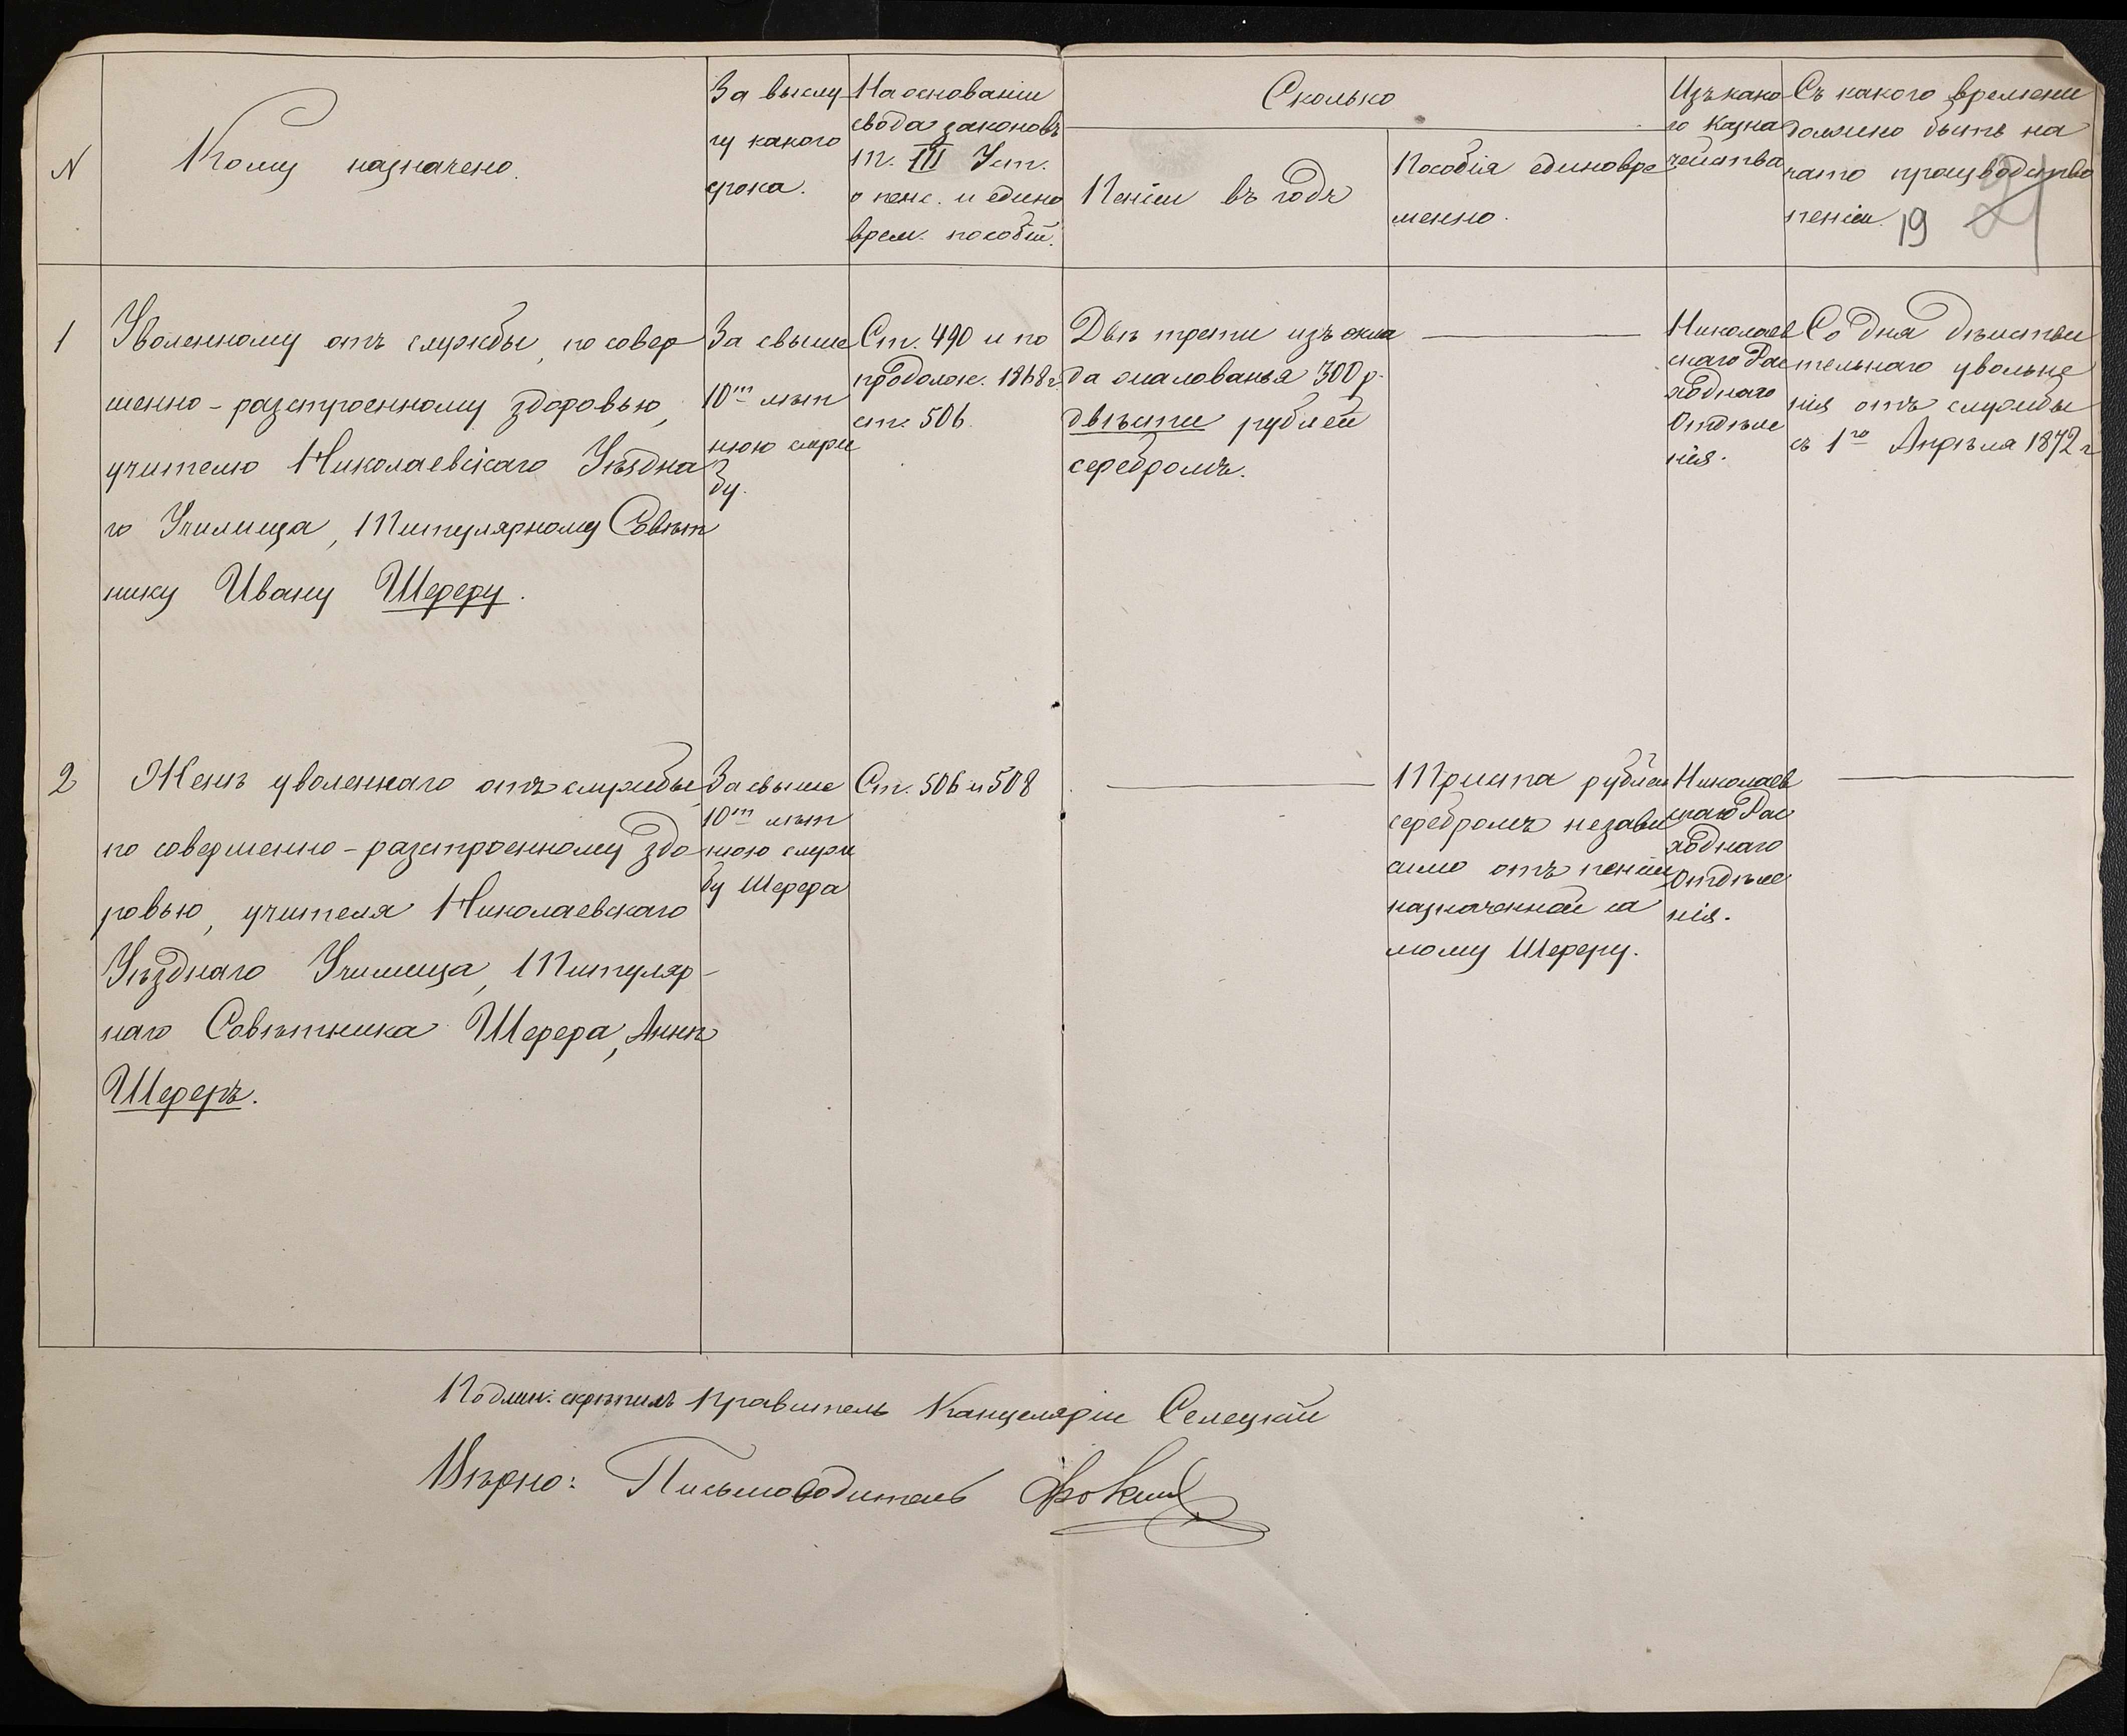 N
Кому назначено.
За выслу
гу какого
срока.
На основаніи
свода законовъ
т. III Уст.
о пенс. и едино
врем. пособій.
Сколько
Пенсіи въ годъ
Пособія единовре
менно.
Изъ како
го Казна
чейства
Съ какого времени
должно быть на
чато производство
пенсіи.
19
1
Уволенному отъ службы, по совер
шенно-разстроенному здоровью,
учителю Николаевскаго Уѣздна
го Училища, Титулярному Совѣт
нику Ивану Шереру.
За свыше
10ти лѣт
нюю служ
бу.
Ст. 490 и по
продолж. 1868 г.
ст. 506.
Двѣ трети изъ окла
да жалованья 300 р.
двѣсти рублей
серебромъ.
Николаев
скаго Рас
ходнаго
Отдѣле
нія.
Со дня дѣйстви
тельнаго увольне
нія отъ службы
съ 1го Апрѣля 1872 г
2
Женѣ уволеннаго отъ службы,
по совершенно-разстроенному здо
ровью, учителя Николаевскаго
Уѣзднаго Училища, Титуляр-
наго Совѣтника Шерера, Аннѣ
Шереръ.
За свыше
10ти лѣт
нюю служ
бу Шерера
Ст. 506 и 508
Триста рублей
серебромъ незави
симо отъ пенсіи
назначенной са
мому Шереру.
Николаев
скаго Рас
ходнаго
Отдѣле
нія.
Подлин: скрѣпилъ Правитель Канцеляріи Селецкій
Вѣрно: Письмоводитель